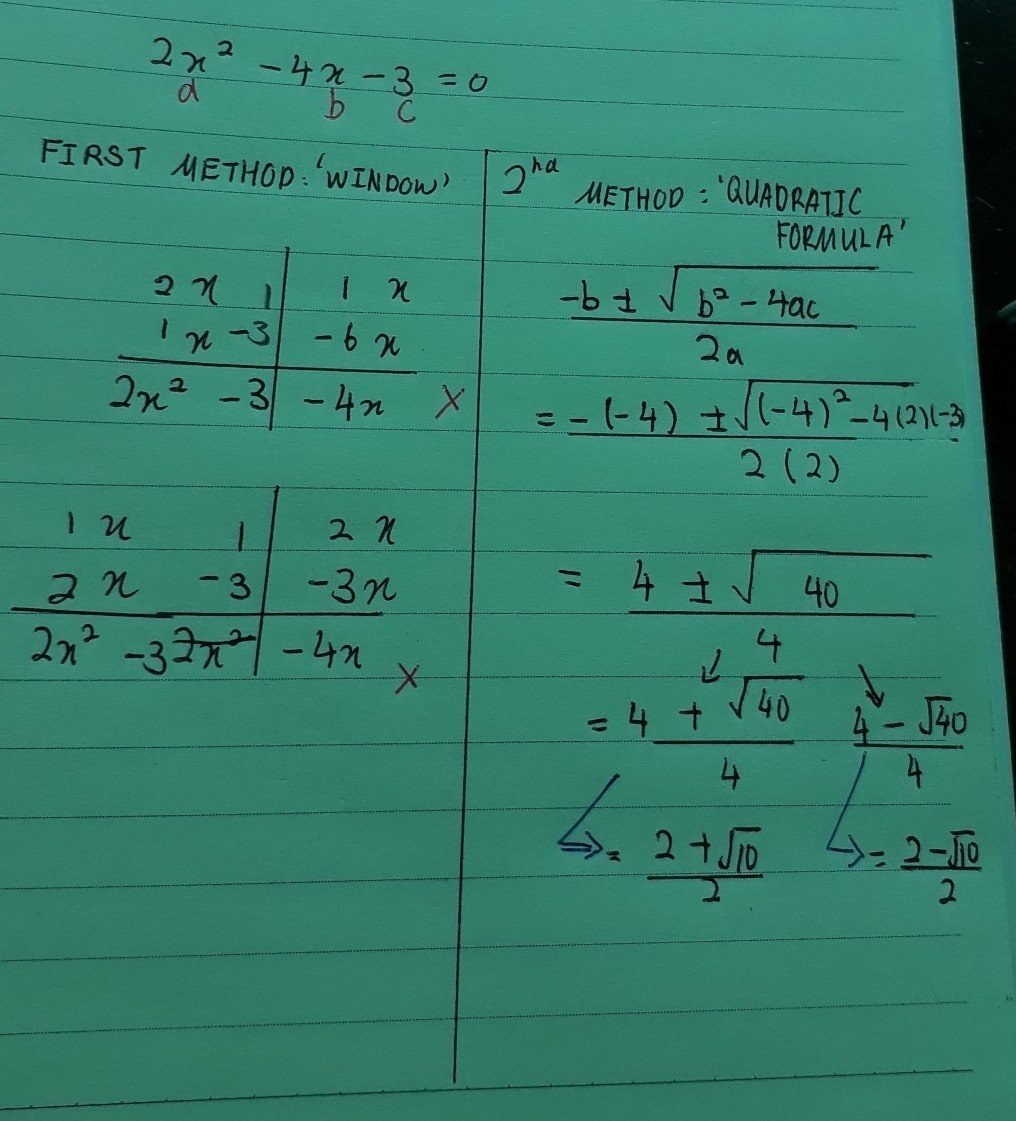 2x² - 4x - 3 = 0
a b c
FIRST METHOD: 'WINDOW'
2x 1 | 1 x
1x -3 | -6 x
2x² -3 | -4x ×
1x 1 | 2 x
2x -3 | -3x
2x² -3 2x² | -4x ×
2nd METHOD: 'QUADRATIC
FORMULA'
-b ± √b² - 4ac
2a
= -(-4) ± √(-4)² - 4(2)(-3)
2(2)
= 4 ± √40
4
↙ ↘
= 4 + √40 4 - √40
4 4
↳ = 2 + √10 ↳ = 2 - √10
2 2